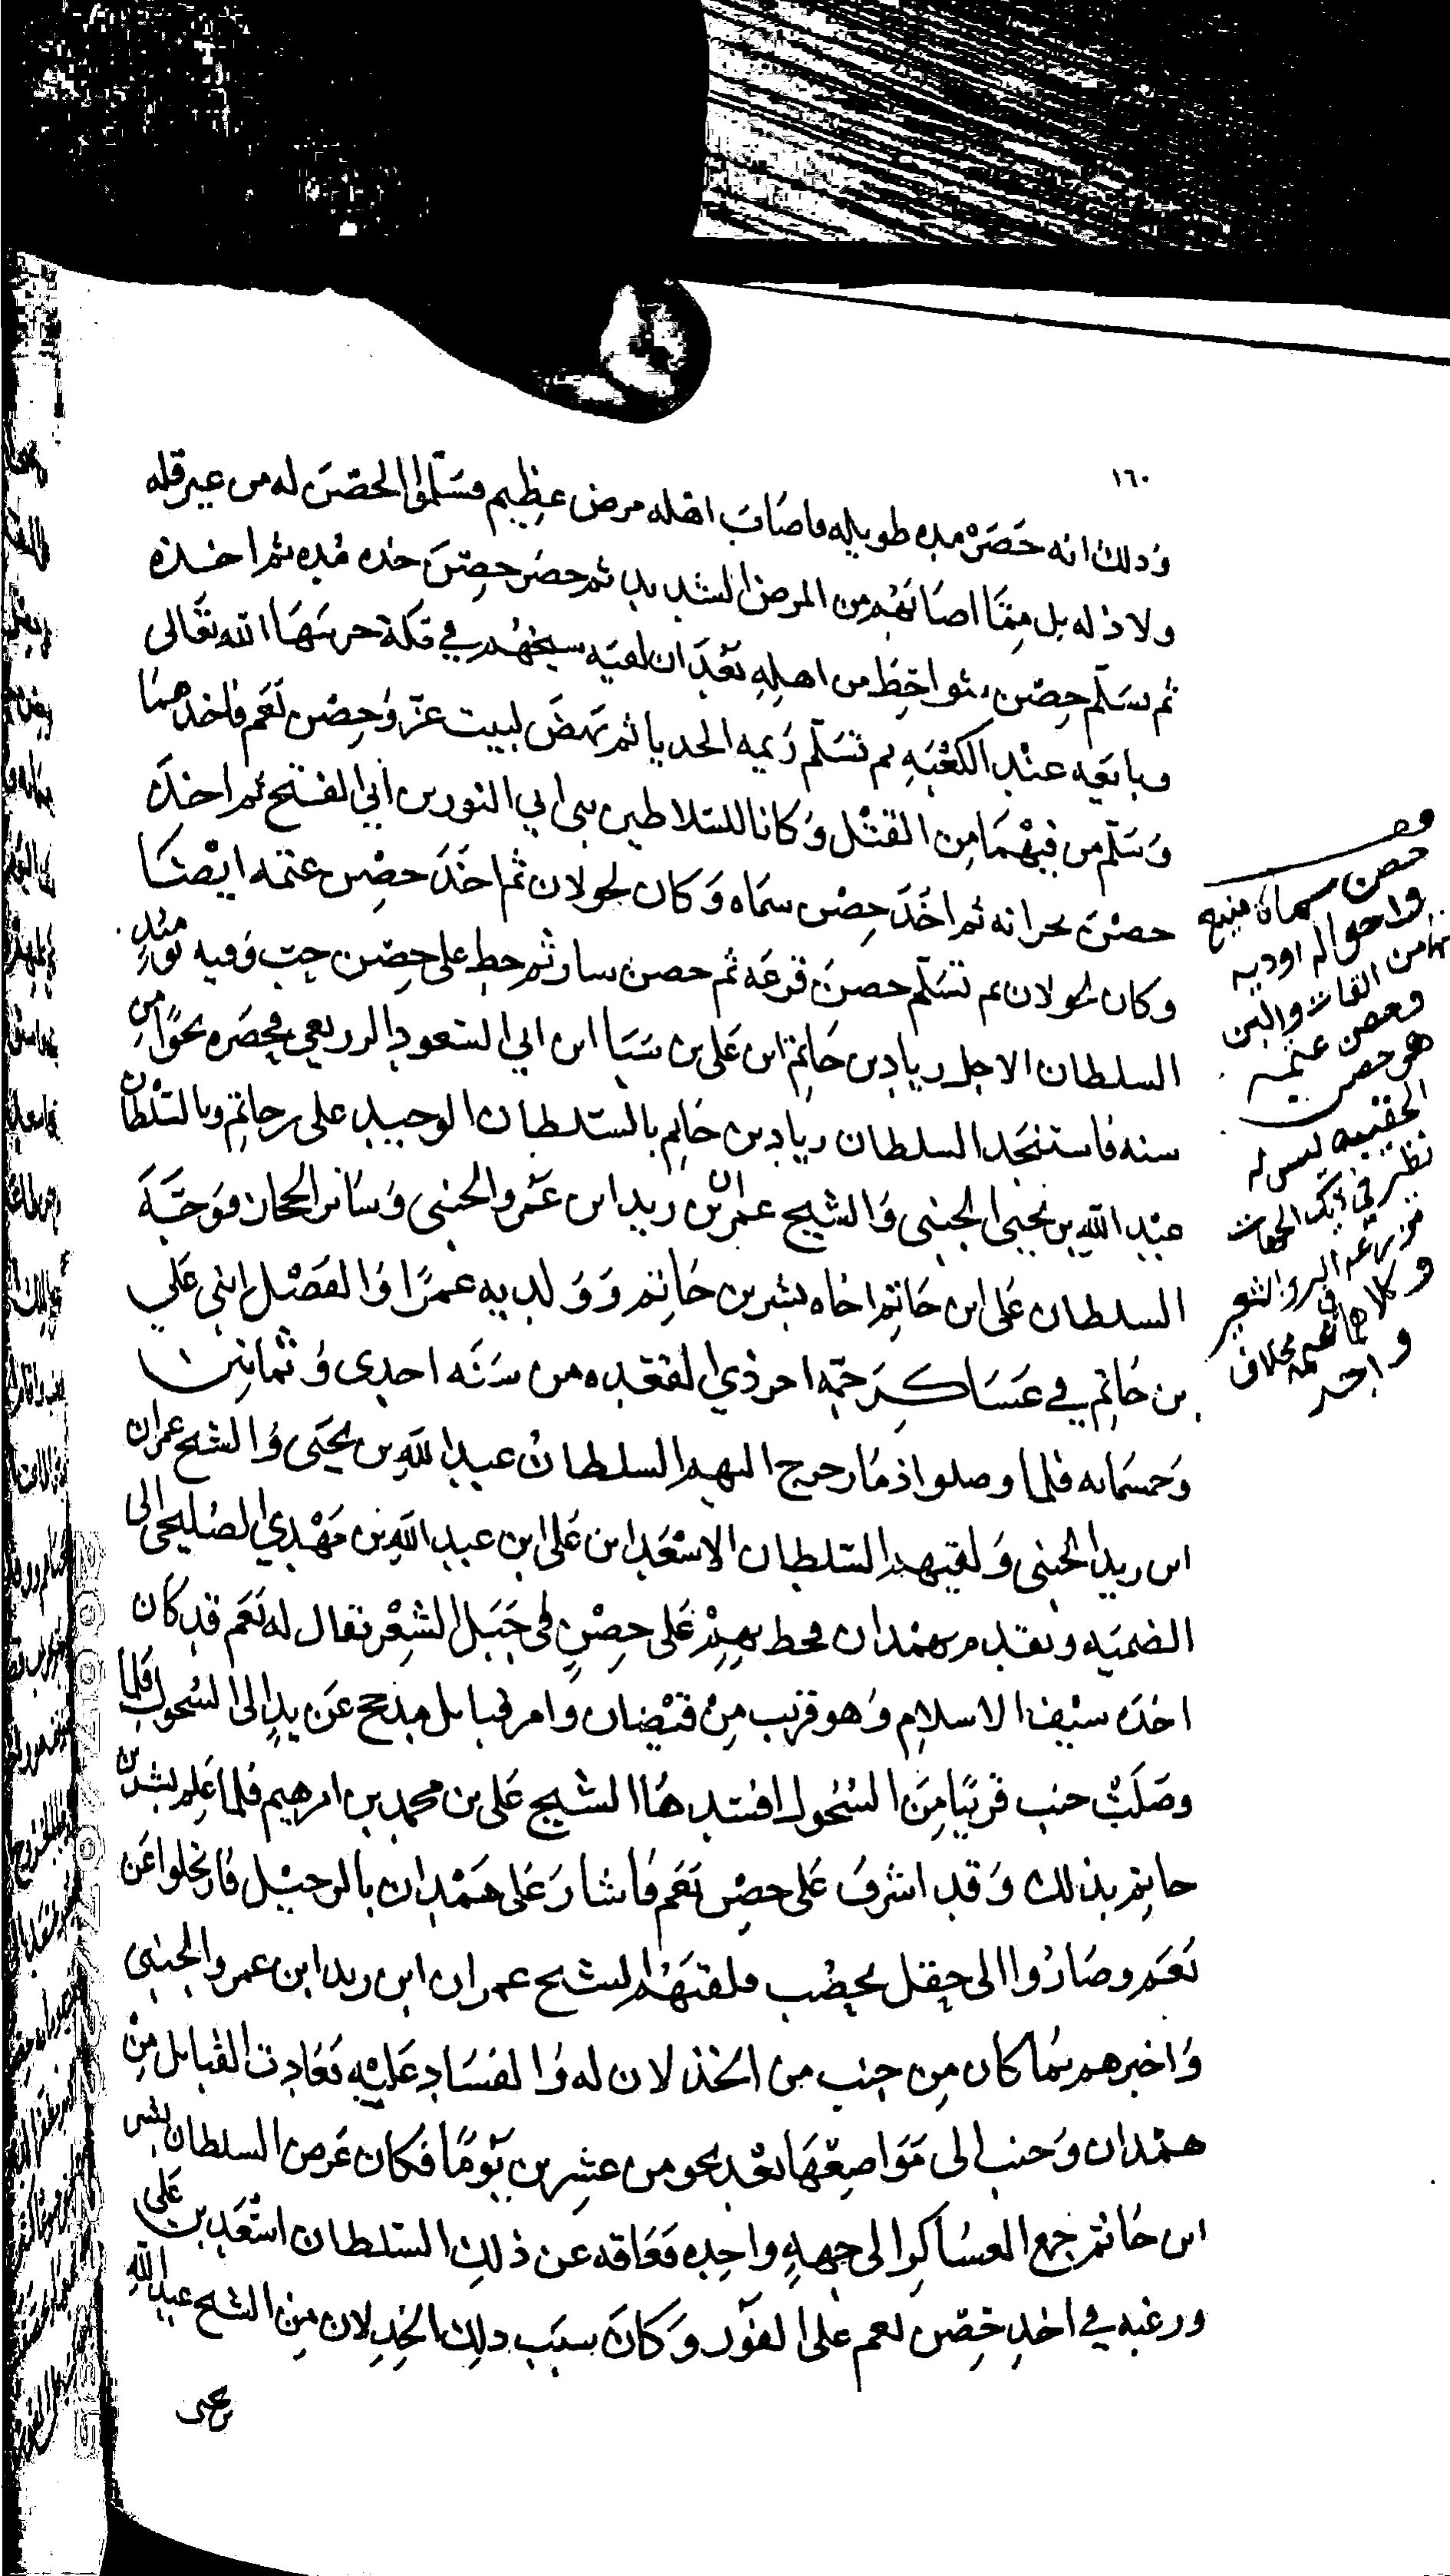 ١٦٠
وذلك انه حَصَرَه مده طويله فاصَابَ اهله مرض عظِيم فسَلّموا الحصْنَ له من غير قله
ولا ذله بل مِمَّا اصَابَهُم من المرض الشديد ثم حصَر حِصْنَ حده مُده ثم اخذه
ثم تسَلّم حِصْن من اهلِهِ بَعْدَ ان لقيه شيخهُم في مَكة حرسَهَا الله تعَالى
وبايَعه عنْد الكعْبَهِ ثم تسَلّم رَيمه الحدبا ثم نهَضَ لبيت عز وحِصْن نَعَم فاخذهما
وَسَلّم من فيهْمَا مِن القتْل وَكانا للسّلاطين بني ابي النور بن أبي الفتح ثم اخذ
حصْنَ بحرانه ثم اخَذَ حِصْن سمَاه وَكان لخولان ثم اخَذَ حصْن عتمه ايضًا
وكان لخولان ثم تسَلّم حصنَ قرعَه ثم حصن سار ثم حط على حِصْن حب وَفيه يَومئذٍ
السلطان الاجل زيادِ بن حَاتم ابن عَلي بن سَبَا ابن ابي السّعود الزريعي فحصَره نحوًا مِن
سنه فاستنجَد السلطان زيادِ بن حَاتم بالسّلطان الوحيد على بن حاتم وبالسّلْطان
عبْد اللّه بن يحيى الجنبي وَالشيخ عمران بن زيد ابن عَمْرو الجنبي وَسَائر الحجاز فوَجَّهَ
السلطان عَلي ابن حَاتم اخاه بشر بن حَاتم وَوَلديه عمرًا وَالفَضْل ابني عَلي
بن حَاتم في عَسَاكر جمّه اخر ذي القعده من سَنَه احدى وَثمانِين
وَخمسمايه فلما وصلوا ذمَار خرج اليهم السلطانُ عبد اللّهِ بن يحْيَى وَالشيخ عمران
ابن زيد الجنبي وَلقيهم السّلطان الاسْعَد ابن عَلى ابن عبد اللهِ بن مَهْدي الصُليحي الى
الضميَه وتقدم همْدان فحط بهِمْ عَلى حِصْنٍ في جَبَل الشِعْر يقال له نَعَم قد كَان
اخذَه سيْف الاسلام وَهو قريب مِنْ قيْضان وامر قبايل مذحج عَن يدٍ الى السُحول فلما
وصَلَتْ جنب قريبًا مِنَ السُحُول افسَدهَا الشيخ عَلى بن محمد بن ابرهيم فلما عَلِم بشر بن
حاتِم بذلك وَقد اشرَفَ عَلى حصْن نَعَم فاشارَ عَلى همْدان بالرحيْل فارتحلوا عَن
نَعَم وصَارُوا الى حِقل يحضِب فلقيَهُم الشيخ عمران ابن زيد ابن عمرو الجنبي
وَاخبرهم بمَا كان مِن جنب من الخذلان له وَالفسَادِ عَليْهِ فعَادت القبايل مِنْ
همْدان وَجنب الى مَوَاضعِهَا بعْد نحو من عشِرين يَومًا فكان غرض السلطان بشر
ابن حَاتم جمع العسَاكر الى جهه واحِدهِ فعَاقه عَن ذلك السّلطان اسْعَد بن عَلى
ورغبه في اخذِ حِصْن نعم على الفَور وَكانَ سبَب ذلك الخِذلان مِنَ الشيخ عبد الله
بن يحيى
حصن سماه منيع
واحواله اوديه
بها من القات والبن
وحصن عتمه
هو حصن
ليس له
نظير في تلك الجهات
مزرعه البر والشعير
وكلاهما في مخلاف
واحد